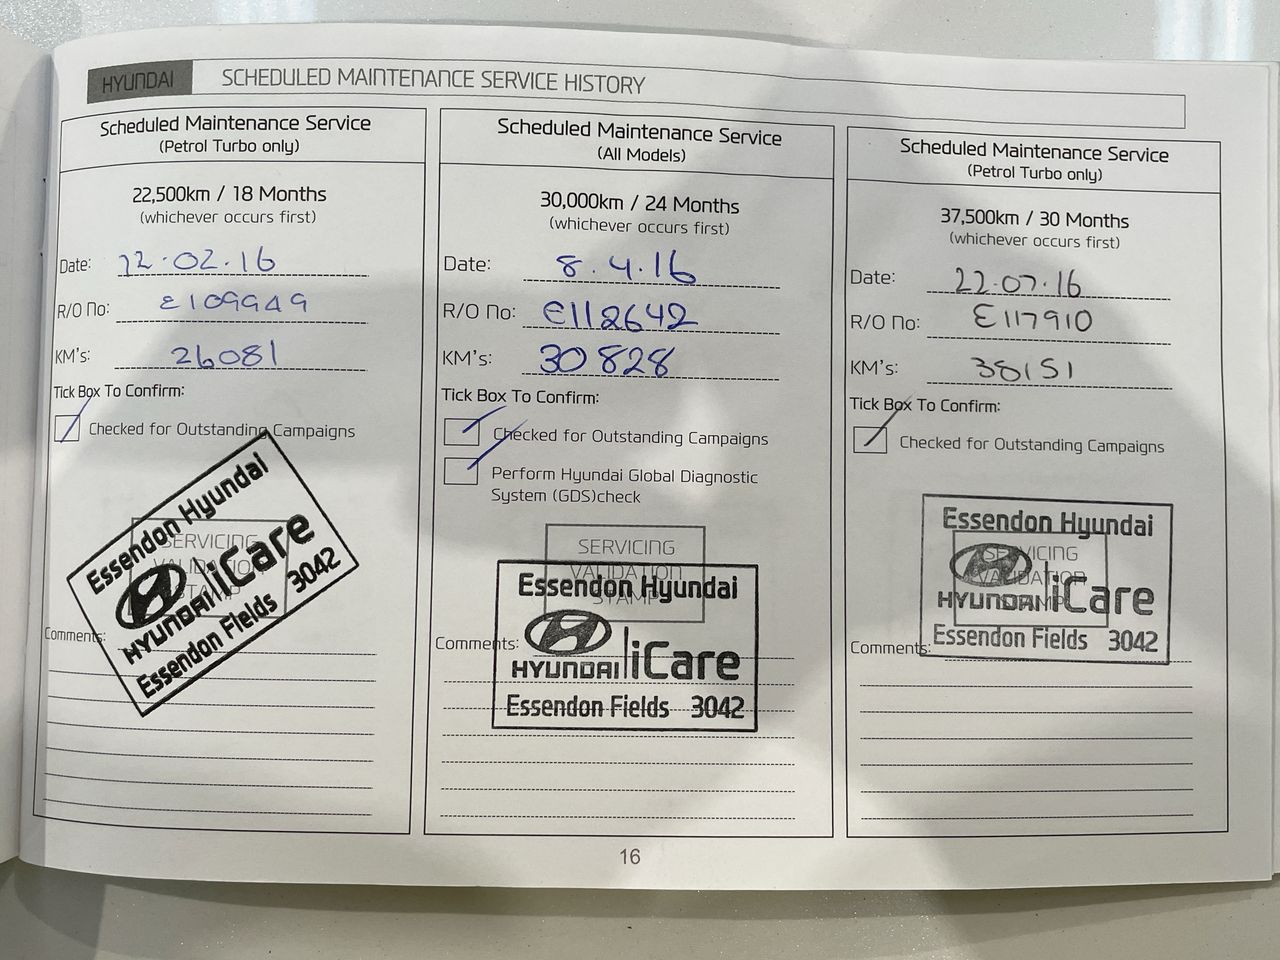 HYUNDAI SCHEDULED MAINTENANCE SERVICE HISTORY
Scheduled Maintenance Service
(Petrol Turbo only)
22,500km / 18 Months
(whichever occurs first)
Date: 12.02.16
R/O No: E109949
KM's: 26081
Tick Box To Confirm:
Checked for Outstanding Campaigns
SERVICING
VALIDATION
STAMP
Essendon Hyundai
HYUNDAI iCare
Essendon Fields 3042
Comments:
Scheduled Maintenance Service
(All Models)
30,000km / 24 Months
(whichever occurs first)
Date: 8.4.16
R/O No: E112642
KM's: 30828
Tick Box To Confirm:
Checked for Outstanding Campaigns
Perform Hyundai Global Diagnostic
System (GDS)check
SERVICING
VALIDATION
STAMP
Essendon Hyundai
HYUNDAI iCare
Essendon Fields 3042
Comments:
Scheduled Maintenance Service
(Petrol Turbo only)
37,500km / 30 Months
(whichever occurs first)
Date: 22.07.16
R/O No: E117910
KM's: 38151
Tick Box To Confirm:
Checked for Outstanding Campaigns
SERVICING
VALIDATION
STAMP
Essendon Hyundai
HYUNDAI iCare
Essendon Fields 3042
Comments:
16